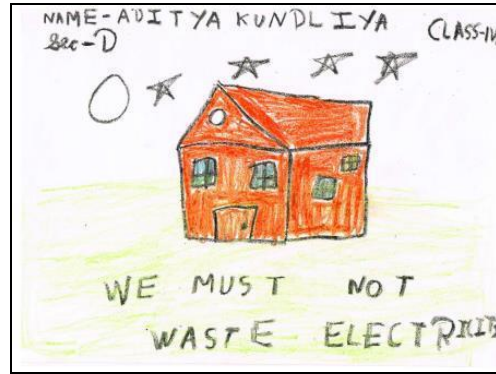 NAME-ADITYA KUNDLIYA CLASS-IV
Sec-D
WE MUST NOT
WASTE ELECTRICITY